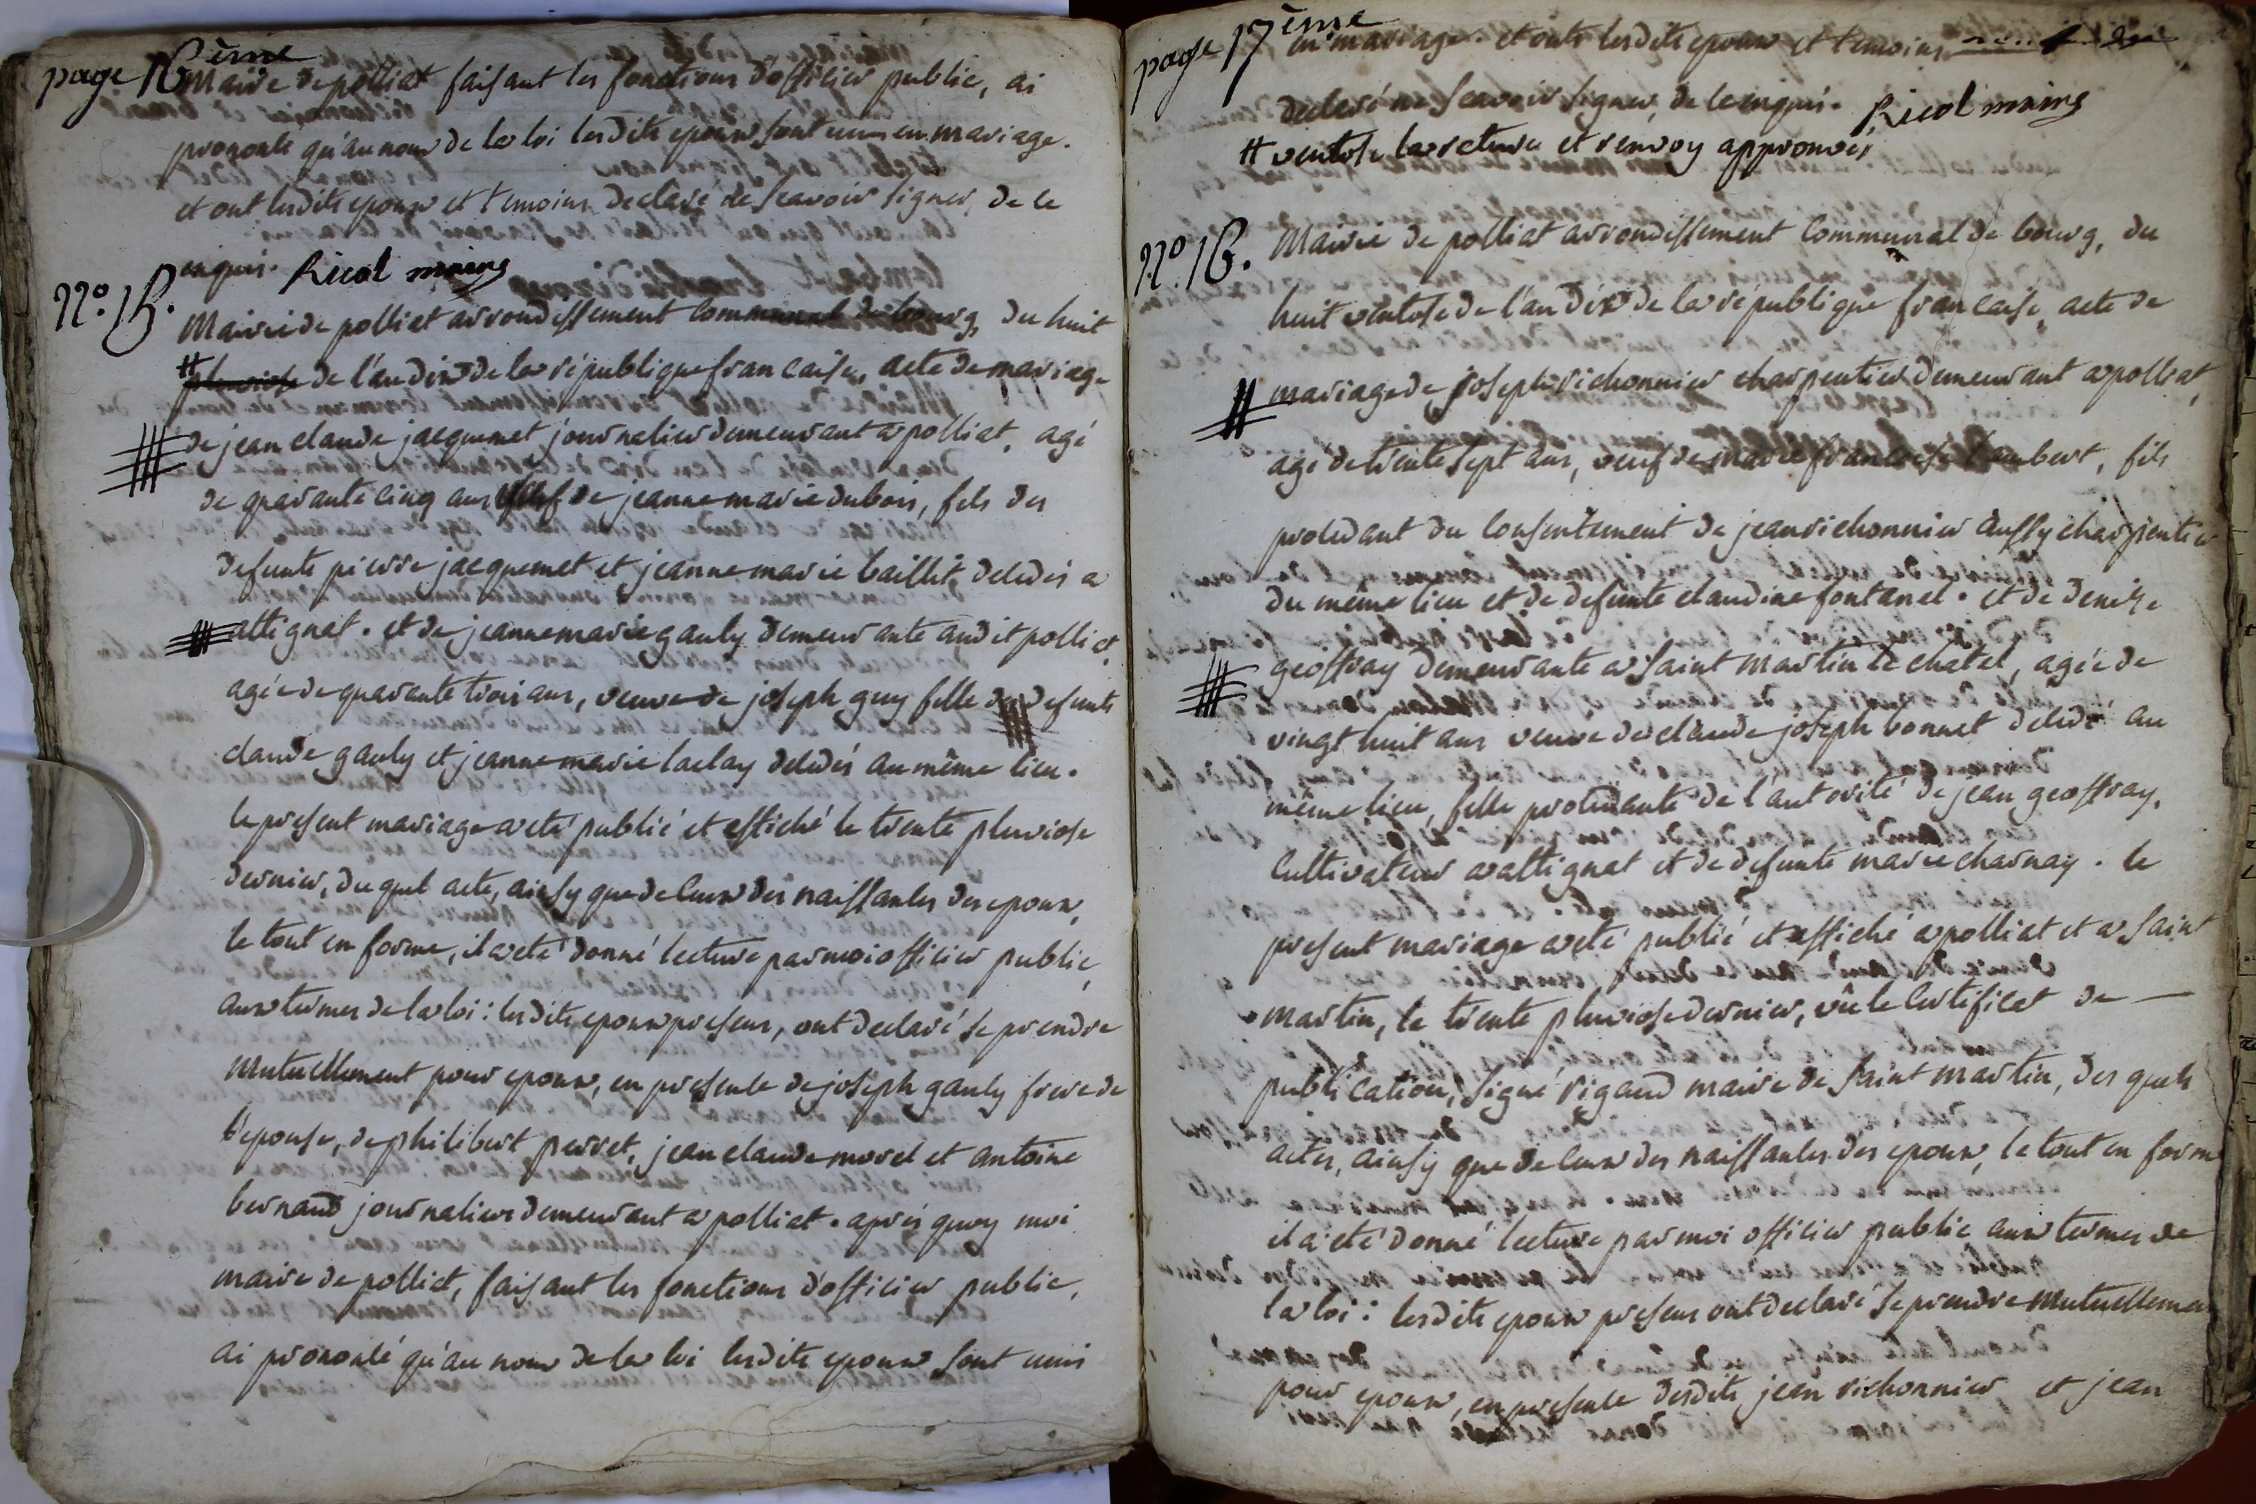 page 16ème
Maire de polliat faisant les fonctions d'officier public, ai
prononcé qu'au nom de la loi lesdits epoux sont unis en mariage.
et ont lesdits epoux et temoins declaré de scavoir signer, de ce
enquis. Ricol maire
N.º 15.
Mairie de polliat arrondissement communal de bourg, du huit
# pluviose de l'an dix de la république francaise, acte de mariage
de jean claude jacquemet journalier demeurant a polliat, agé
de quarante cinq ans veuf de jeanne marie dubois, fils des
defunts pierre jacquemet et jeanne marie baillet decedés a
attignat. et de jeanne marie gauly demeurante audit polliat,
agée de quarante trois ans, veuve de joseph guy fille de defunts
claude gauly et jeanne marie laclay decedés au même lieu.
le present mariage a eté publié et affiché le trente pluviose
dernier, du quel acte, ainsy que de ceux des naissances des epoux,
le tout en forme, il a eté donné lecture par moi officier public,
aux termes de la loi: lesdits epoux presens, ont declaré se prendre
mutuellement pour epoux, en presence de joseph gauly frere de
l'epouse, de philibert perret, jean claude morel et antoine
bernand journaliers demeurant a polliat. aprés quoy moi
maire de polliat, faisant les fonctions d'officier public,
ai prononcé qu'au nom de la loi lesdits epoux sont unis
page 17ème
en mariage. et onts lesdits epoux et temoins
declaré ne scavoir signer, de ce enquis. Ricol maire
# ventose la rature et renvoy approuvés
N.º 16.
Mairie de polliat arrondissement communal de bourg, du
huit ventose de l'an dix de la république francaise, acte de
mariage de joseph richonnier charpentier demeurant a polliat,
agé de trente sept ans, veuf de marie francoise lambert, fils
procedant du consentement de jean richonnier aussy charpentier
du même lieu et de defunte claudine fontanel. et de denize
geoffray demeurante a saint martin le chatel, agée de
vingt huit ans veuve de claude joseph bonnet decedé au
même lieu, fille procedante de l'autorité de jean geoffray,
cultivateur a attignat et de defunte marie charnay. le
present mariage a eté publié et affiché a polliat et a saint
martin, le trente pluviose dernier, vû le certificat de —
publication, signé rigaud maire de saint martin, des quels
actes, ainsy que de ceux des naissances des epoux, le tout en forme
il a eté donné lecture par moi officier public aux termes de
la loi: lesdits epoux presens ont declaré se prendre mutuellement
pour epoux, en presence desdits jean richonnier et jean